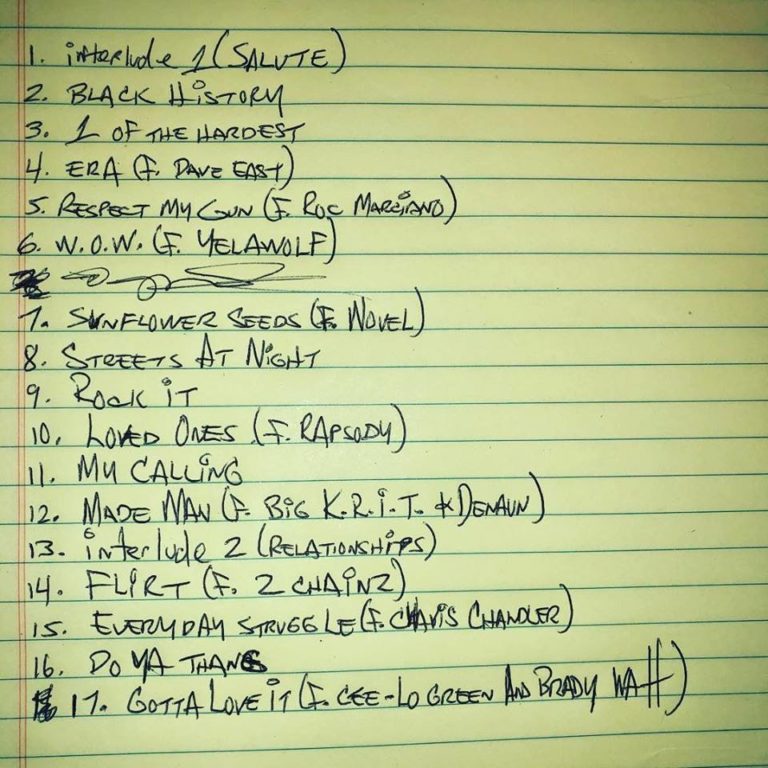 1. interlude 1 (SALUTE)
2. BLACK HiSTORY
3. 1 OF THE HARDEST
4. ERA (F. DAVE EAST)
5. RESPECT MY GUN (F. ROC MARCiANO)
6. W.O.W. (F. YELAWOLF)
7. SUNFLOWER SEEDS (F. NOVEL)
8. STREETS AT NiGHT
9. ROCK iT
10. LOVED ONES (F. RAPSODY)
11. MY CALLiNG
12. MADE MAN (F. BiG K.R.i.T. & DENAUN)
13. interlude 2 (RELATiONSHiPS)
14. FLiRT (F. 2 CHAiNZ)
15. EVERYDAY STRUGGLE (F. CHAViS CHANDLER)
16. DO YA THANG
17. GOTTA LOVE iT (F. CEE-LO GREEN AND BRADY WATT)